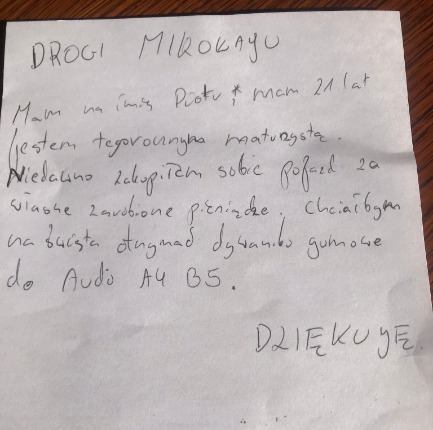 DROGI MIKOKAYU
Mam na imię Piotr i mam 21 lat
jestem tegorocznym maturzystą.
Niedawno zakupiłem sobie pojazd za
własne zarobione pieniądze. Chciałbym
na święta otrzymać dywaniki gumowe
do Audi A4 B5.
DZIĘKUYĘ